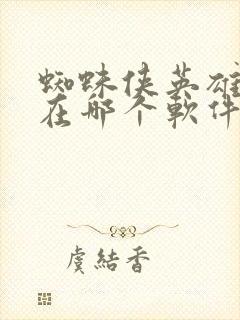 蜘蛛侠英雄
在哪个軟件
虞結香